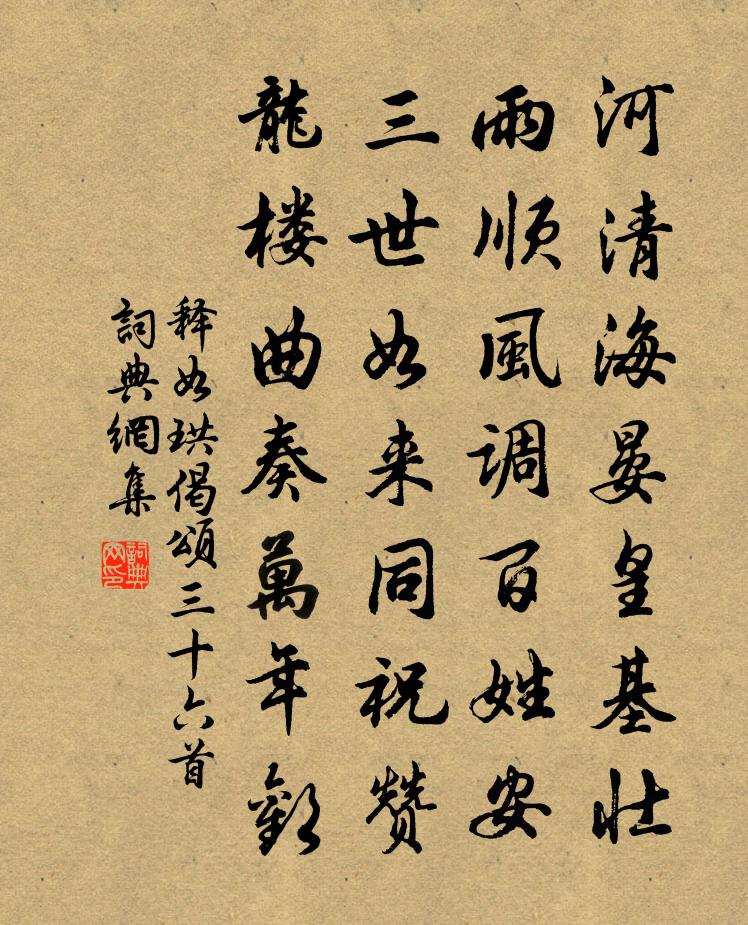 河清海晏皇基壮
雨顺風调百姓安
三世如来同祝赞
龍楼曲奏萬年歡
释如珙偈頌三十六首
詞典網集
詞典网印